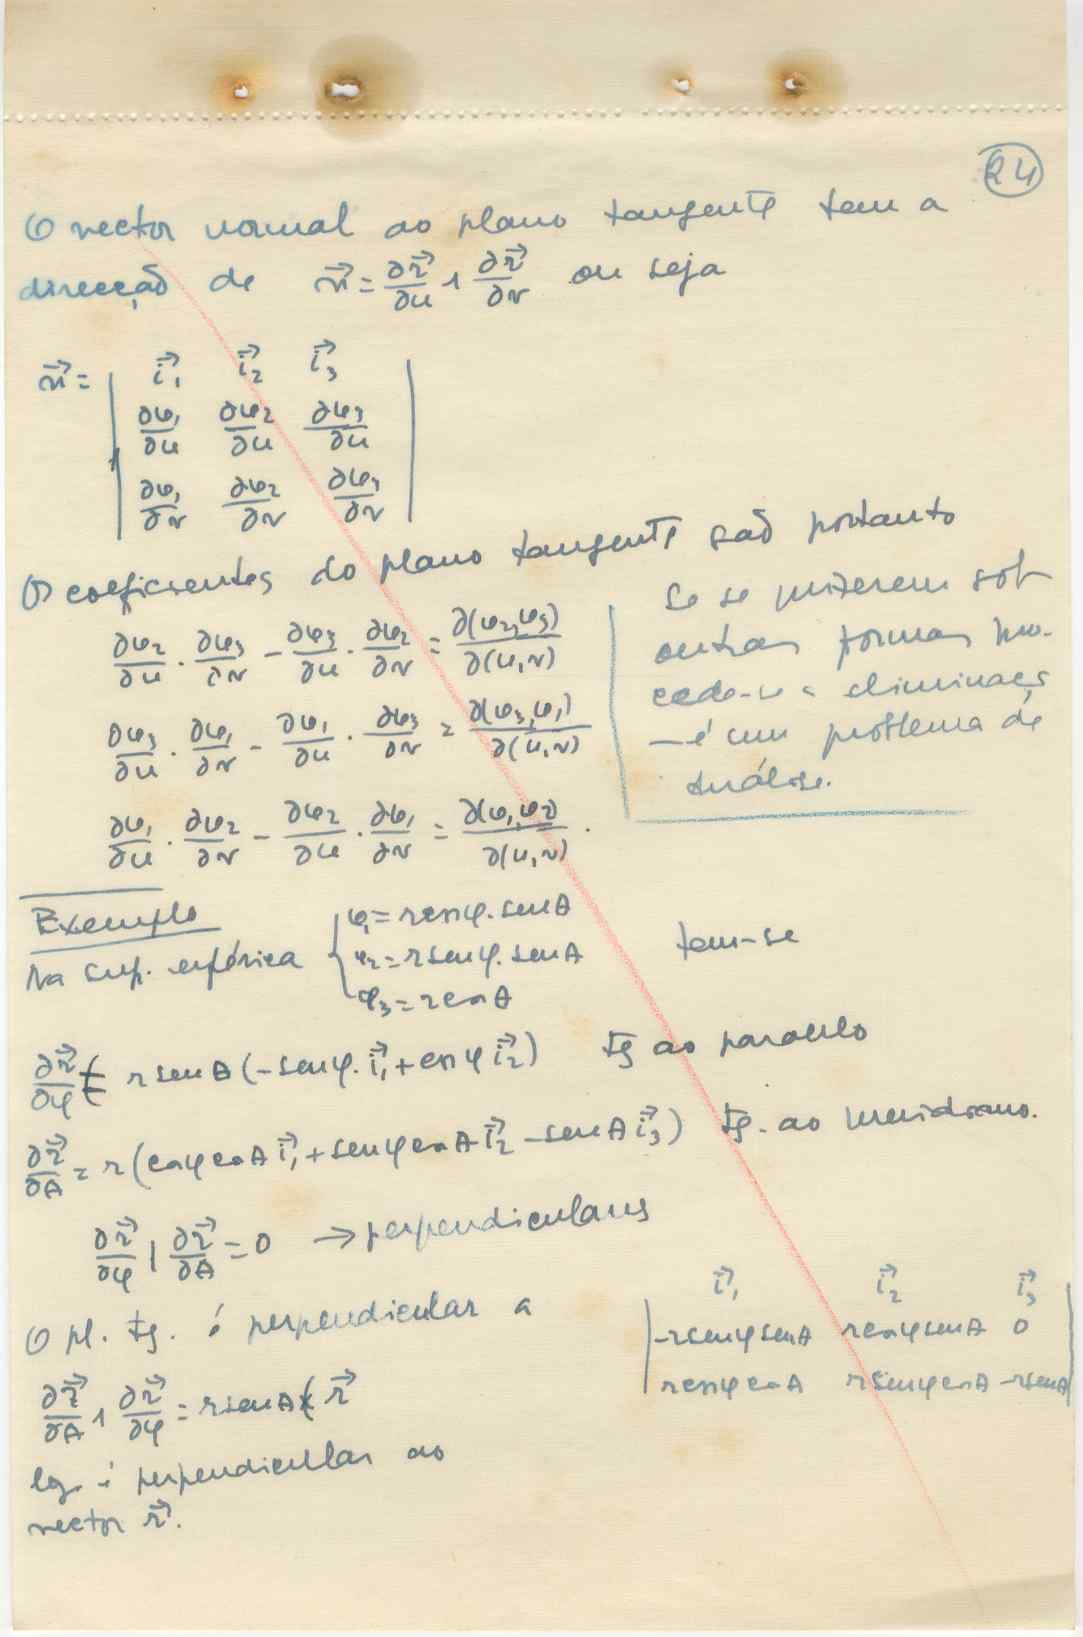 24
O vector normal ao plano tangente tem a
direcção de n⃗ = ∂r⃗/∂u ∧ ∂r⃗/∂v ou seja
n⃗ = | i⃗₁ i⃗₂ i⃗₃ |
| ∂φ₁/∂u ∂φ₂/∂u ∂φ₃/∂u |
| ∂φ₁/∂v ∂φ₂/∂v ∂φ₃/∂v |
Os coeficientes do plano tangente são portanto
∂φ₂/∂u · ∂φ₃/∂v − ∂φ₃/∂u · ∂φ₂/∂v = ∂(φ₂,φ₃)/∂(u,v)
∂φ₃/∂u · ∂φ₁/∂v − ∂φ₁/∂u · ∂φ₃/∂v = ∂(φ₃,φ₁)/∂(u,v)
∂φ₁/∂u · ∂φ₂/∂v − ∂φ₂/∂u · ∂φ₁/∂v = ∂(φ₁,φ₂)/∂(u,v).
Se se puserem sob
outras formas pro-
cede-se a eliminações
— é um problema de
Análise.
Exemplo
Na sup. esférica { φ₁ = r cos φ. sen θ
φ₂ = r sen φ. sen θ tem-se
φ₃ = r cos θ
∂r⃗/∂φ = r sen θ (−sen φ. i⃗₁ + cos φ i⃗₂) tg ao paralelo
∂r⃗/∂θ = r (cos φ cos θ i⃗₁ + sen φ cos θ i⃗₂ − sen θ i⃗₃) tg. ao meridiano.
∂r⃗/∂φ | ∂r⃗/∂θ = 0 → perpendiculares
O pl. tg. é perpendicular a
| i⃗₁ i⃗₂ i⃗₃ |
| −r sen φ sen θ r cos φ sen θ 0 |
| r cos φ cos θ r sen φ cos θ −r sen θ |
∂r⃗/∂θ ∧ ∂r⃗/∂φ = r sen θ r⃗
lg. é perpendicular ao
vector r⃗.